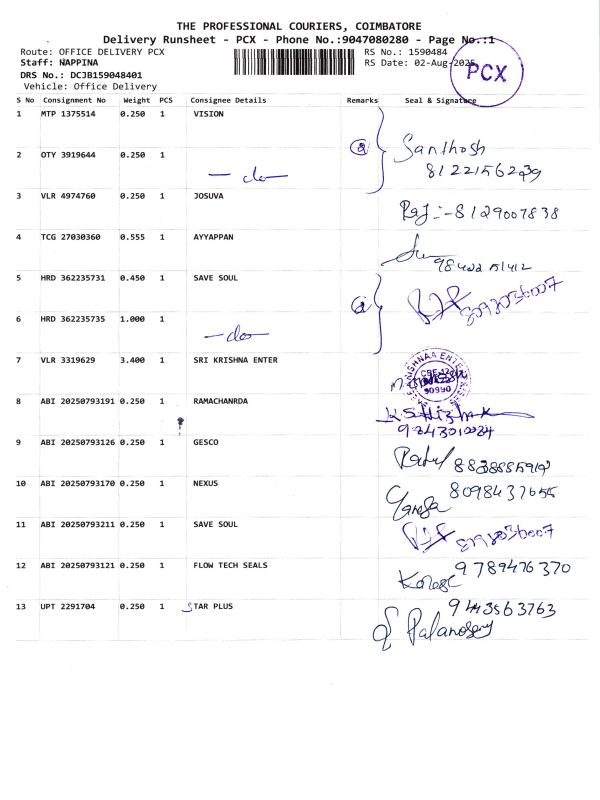 THE PROFESSIONAL COURIERS, COIMBATORE
Delivery Runsheet - PCX - Phone No.:9047080280 - Page No.:1
Route: OFFICE DELIVERY PCX RS No.: 1590484
Staff: NAPPINA RS Date: 02-Aug-2025
DRS No.: DCJB159048401
Vehicle: Office Delivery
PCX
S No Consignment No Weight PCS Consignee Details Remarks Seal & Signature
1 MTP 1375514 0.250 1 VISION
Santhosh
2 OTY 3919644 0.250 1
8122156239
— do —
3 VLR 4974760 0.250 1 JOSUVA
Raj :- 8129007838
4 TCG 27030360 0.555 1 AYYAPPAN
5 HRD 362235731 0.450 1 SAVE SOUL
6 HRD 362235735 1.000 1
— do —
7 VLR 3319629 3.400 1 SRI KRISHNA ENTER
8 ABI 20250793191 0.250 1 RAMACHANRDA
9 ABI 20250793126 0.250 1 GESCO
10 ABI 20250793170 0.250 1 NEXUS
8098437655
11 ABI 20250793211 0.250 1 SAVE SOUL
12 ABI 20250793121 0.250 1 FLOW TECH SEALS
9789476370
13 UPT 2291704 0.250 1 STAR PLUS
9443563763